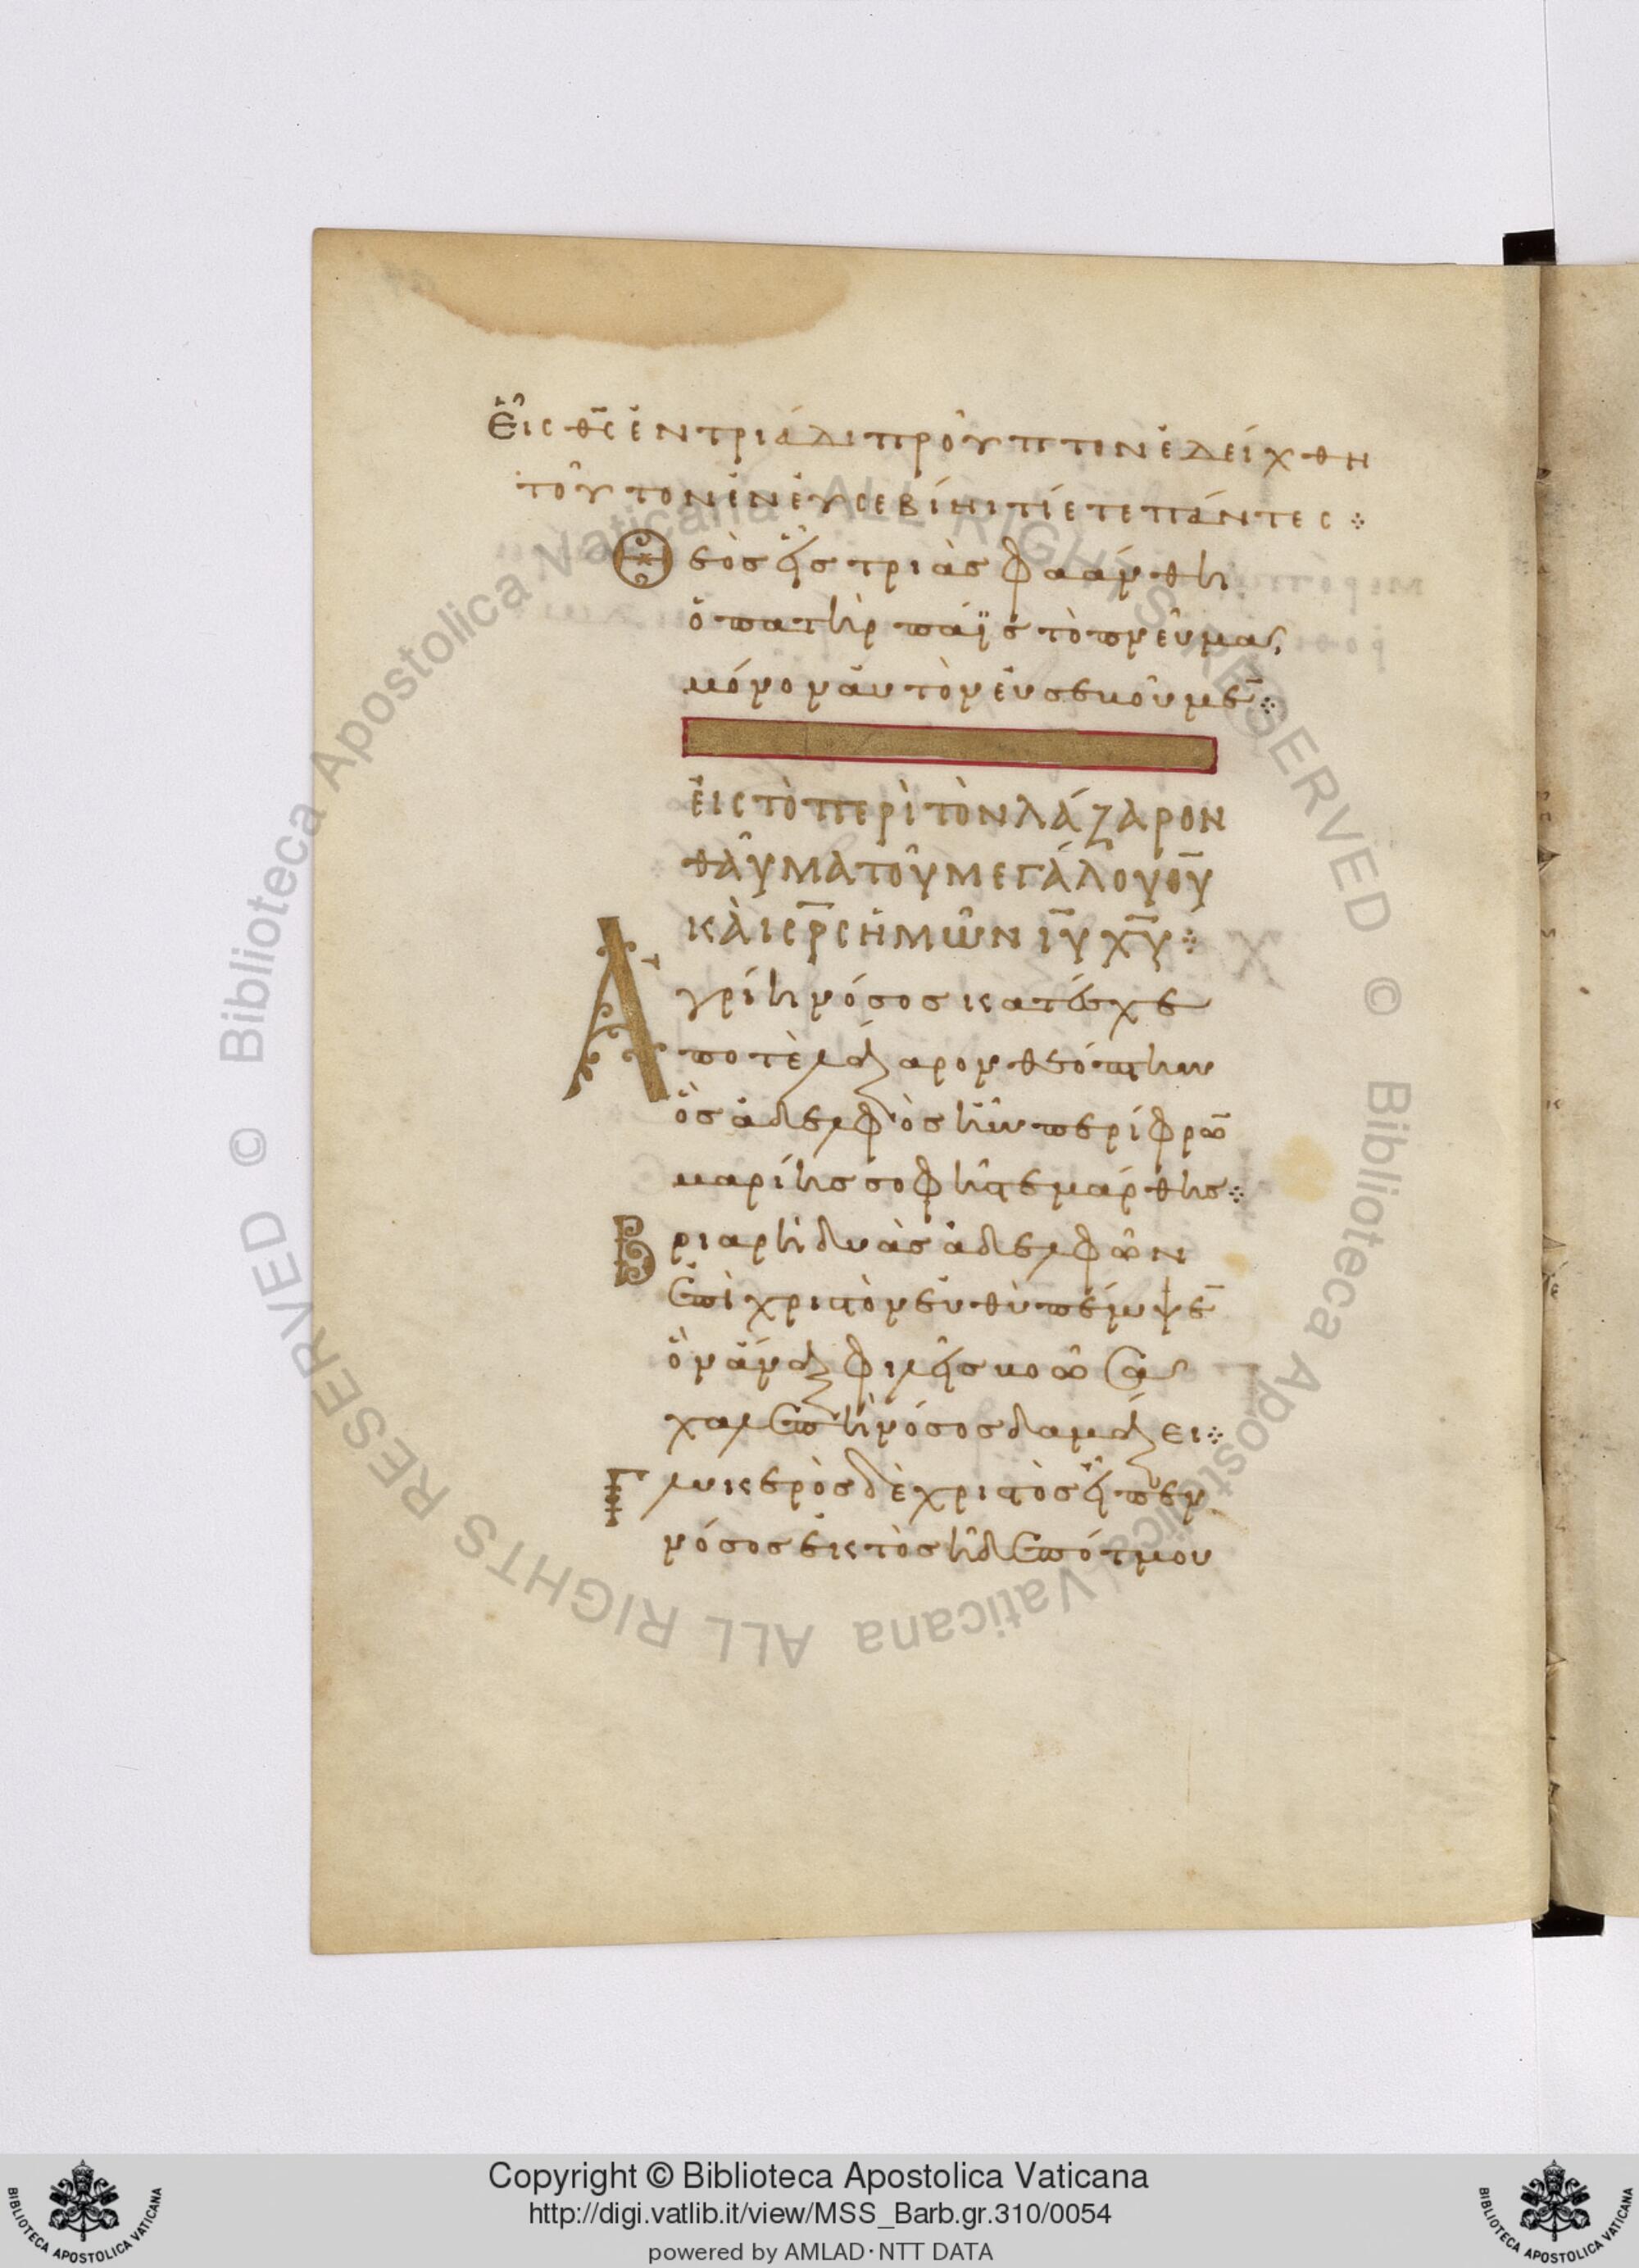 Εἷς θς ἐν τριάδι προῦπτον ἐδείχθη
τοῦτον ἐν ἐυσεβίηι τίετε πάντες ⁘
Θεὸς εἷς τριὰς φαάνθη
ὁ πατὴρ πάϊς τὸ πνεῦμα,
μόνον ἀυτὸν ἐυσεβοῦμε̅ ⁘
ἐις τὸ περὶ τὸν λάζαρον
θαῦμα τοῦ μεγάλου θυ
κὰι σρς ἡμῶν ιυ χυ ⁘
Ἀγρίη νόσος κατέσχε
ποτὲ λάζαρον θεόπτην
ὃς ἀδελφὸς ἦν περίφρω̅
μαρίης σοφῆς τε μάρθης ⁘
Βριαρὴ δυὰς ἀδελφῶν
ἐπὶ χριστὸν ἐυθὺ πέμψε̅
ὃν ἄναξ φιλεῖς βοῶσα
χαλεπὴ νόσος δαμάζει ⁘
Γλυκερὸς δὲ χριστὸς εἶπεν
νόσος ἐκτὸς ἦδε πότμου
Copyright © Biblioteca Apostolica Vaticana
http://digi.vatlib.it/view/MSS_Barb.gr.310/0054
powered by AMLAD·NTT DATA
BIBLIOTECA APOSTOLICA VATICANA
BIBLIOTECA APOSTOLICA VATICANA
© Biblioteca Apostolica Vaticana ALL RIGHTS RESERVED © Biblioteca Apostolica Vaticana ALL RIGHTS RESERVED